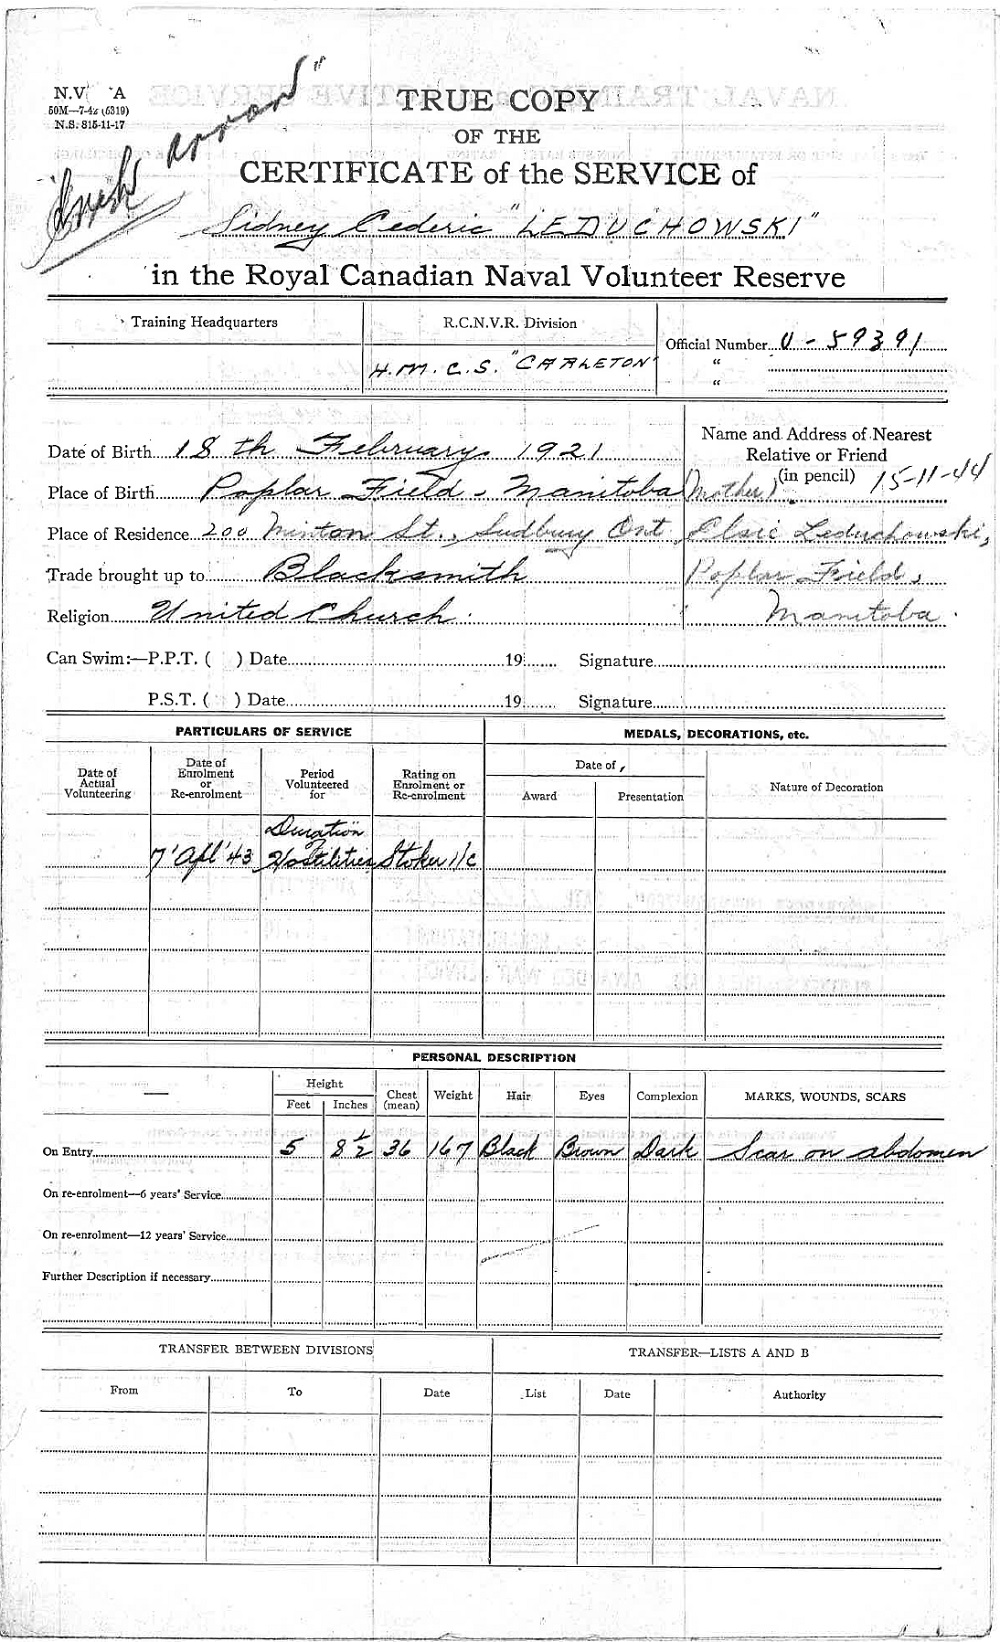 N.V A
50M—7-42 (6319)
N.S. 815-11-17
TRUE COPY
OF THE
CERTIFICATE of the SERVICE of
Sidney Cederic "LEDUCHOWSKI"
in the Royal Canadian Naval Volunteer Reserve
Training Headquarters
R.C.N.V.R. Division
H.M.C.S. "CARLETON"
Official Number V-59391
"
"
Date of Birth 18th February, 1921
Name and Address of Nearest
Relative or Friend
(in pencil) 15-11-44
Place of Birth Poplar Field - Manitoba (Mother)
Place of Residence 200 Minton St., Sudbury Ont Elsie Leduchowski,
Trade brought up to Blacksmith Poplar Field,
Religion United Church. Manitoba.
Can Swim:—P.P.T. ( ) Date 19 Signature
P.S.T. ( ) Date 19 Signature
PARTICULARS OF SERVICE
MEDALS, DECORATIONS, etc.
Date of
Actual
Volunteering
Date of
Enrolment
or
Re-enrolment
Period
Volunteered
for
Rating on
Enrolment or
Re-enrolment
Date of
Award
Presentation
Nature of Decoration
Duration
7'Apl'43 Hostilities Stoker 1/c
PERSONAL DESCRIPTION
—
Height
Feet Inches
Chest
(mean)
Weight
Hair
Eyes
Complexion
MARKS, WOUNDS, SCARS
On Entry 5 8½ 36 167 Black Brown Dark Scar on abdomen
On re-enrolment—6 years' Service
On re-enrolment—12 years' Service
Further Description if necessary
TRANSFER BETWEEN DIVISIONS
TRANSFER—LISTS A AND B
From To Date List Date Authority